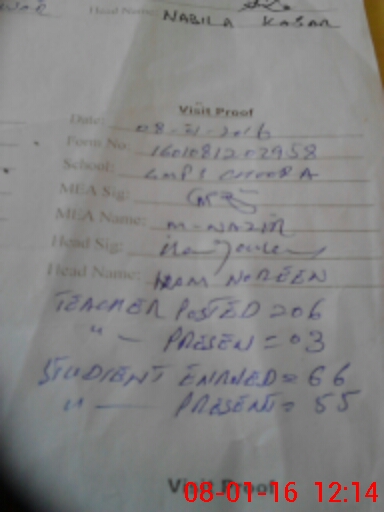 Head Name: NABILA KASAR
Visit Proof
Date: 08-01-2016
Form No: 1601081202958
School: GMPS
MEA Sig:
MEA Name: M-NAZIR
Head Sig:
Head Name: IRAM NOREEN
TEACHER POSTED = 06
" — PRESEN = 03
STUDIENT ENRNED = 66
" — PRESENT = 55
Visit Proof
08-01-16 12:14